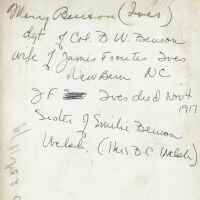 Mary Benson (Ives)
dgt of Col. B. W. Benson
wife of James Frontes Ives
New Bern NC
J F Ives died Nov 4
1917
Sister of Emilie Benson
Welsh. (Mrs B. C. Welsh)